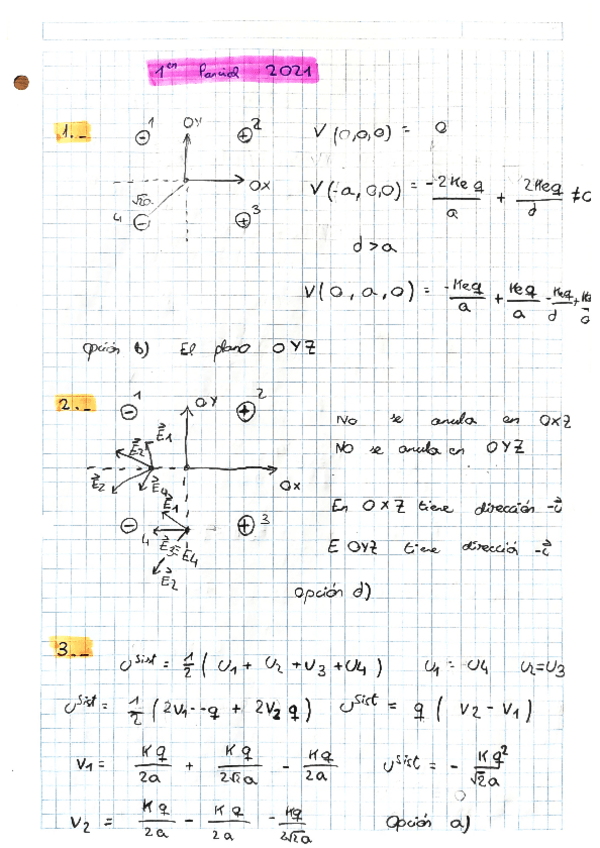 1er Parcial 2021
1._
1 OY 2
⊖ ⊕
OX
√2a
4 ⊖ ⊕ 3
V(0,0,0) = 0
V(-a,0,0) = -2Keq/a + 2Keq/d ≠0
d>a
V(0,a,0) = -Keq/a + Keq/a - Keq/d +
Opción b) El plano OYZ
2._
1 OY 2
⊖ ⊕
E⃗2 E⃗1
E⃗2 E⃗4 OX
E⃗1
⊖ 4 ⊕ 3
E⃗3 E⃗4
E⃗2
No se anula en OXZ
No se anula en OYZ
En OXZ tiene dirección -i⃗
E OYZ tiene dirección -i⃗
opción d)
3._
Usist = 1/2 (U1 + U2 + U3 + U4) U1 = U4 U2=U3
Usist = 1/2 (2V1·-q + 2V2 q) Usist = q (V2 - V1)
V1 = Kq/2a + Kq/2√2a - Kq/2a Usist = - Kq²/√2a
V2 = Kq/2a - Kq/2a - Kq/2√2a Opción a)